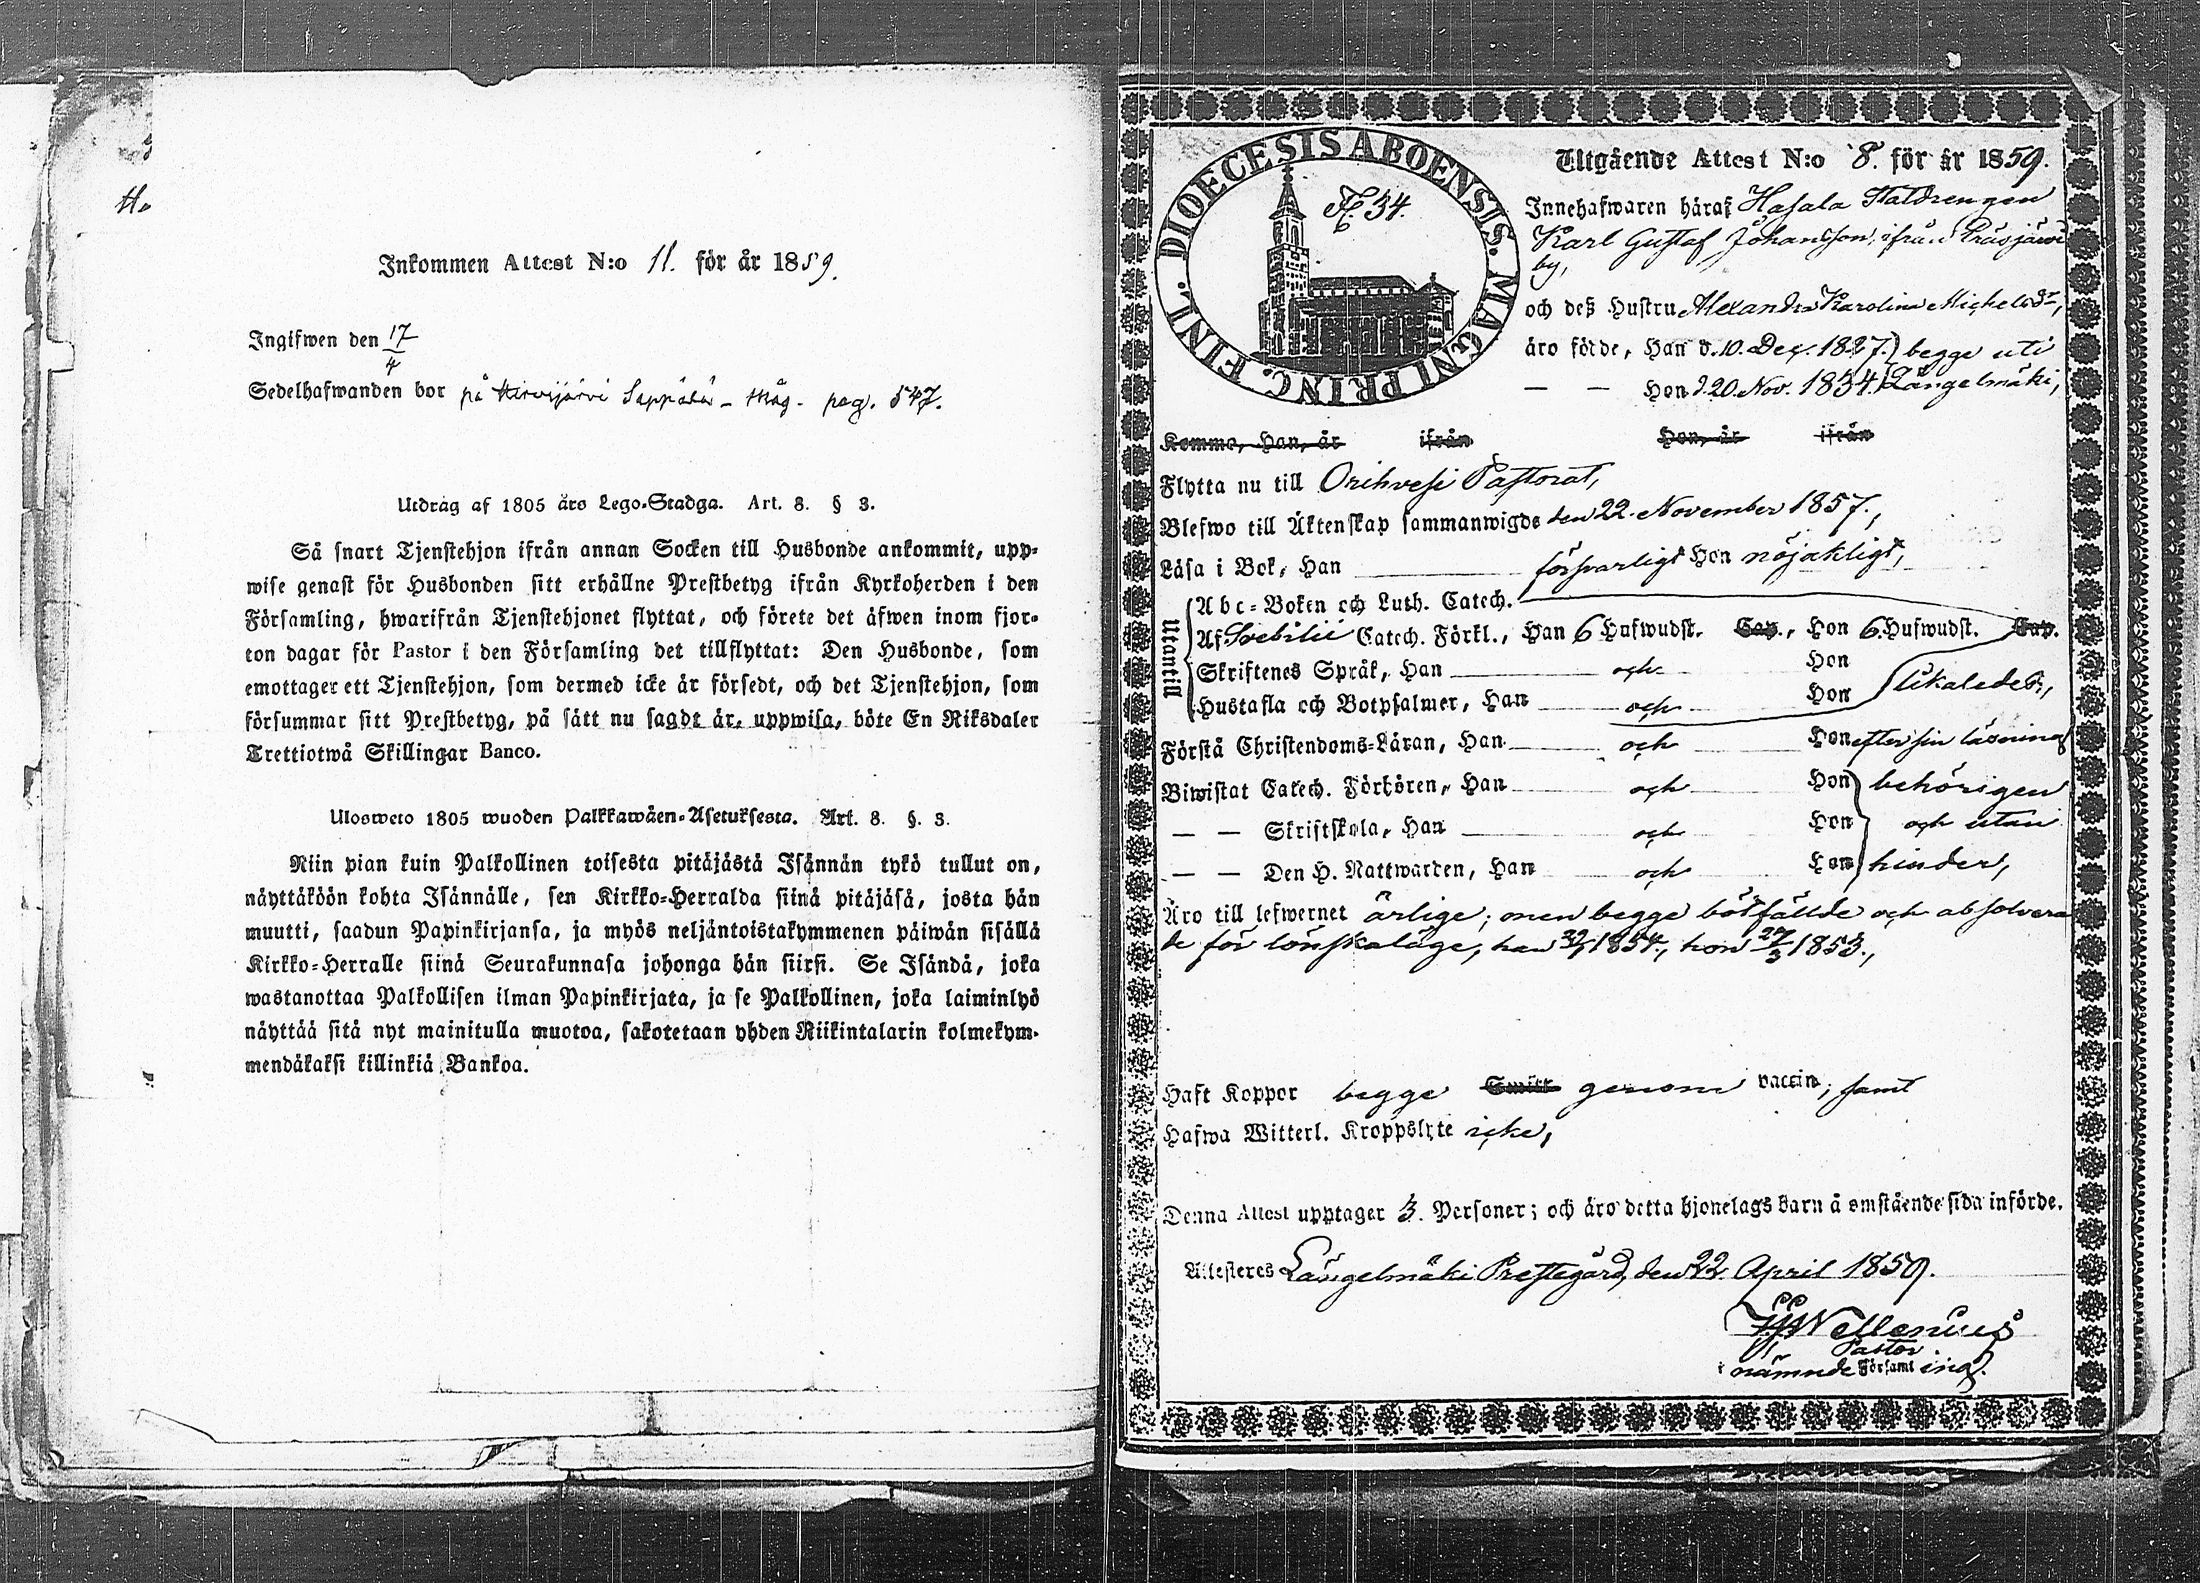 Inkommen Attest N:o 11. för år 1859.
Ingifwen den 17/4
Sedelhafwanden bor på Hirvijärvi Seppälä - Måg - pag. 547.
Utdrag af 1805 års Lego-Stadga. Art. 8. § 3.
Så snart Tjenstehjon ifrån annan Socken till Husbonde ankommit, upp-
wise genast för Husbonden sitt erhållne Prestbetyg ifrån Kyrkoherden i den
Församling, hwarifrån Tjenstehjonet flyttat, och förete det äfwen inom fjor-
ton dagar för Pastor i den Församling det tillflyttat: Den Husbonde, som
emottager ett Tjenstehjon, som dermed icke är försedt, och det Tjenstehjon, som
försummar sitt Prestbetyg, på sätt nu sagdt är, uppwisa, böte En Riksdaler
Trettiotwå Skillingar Banco.
Ulosweto 1805 wuoden Palkkawäen-Asetuksesta. Art. 8. §. 3.
Niin pian kuin Palkollinen toisesta pitäjästä Isännän tykö tullut on,
näyttäköön kohta Isännälle, sen Kirkko-Herralda siinä pitäjäsä, josta hän
muutti, saadun Papinkirjansa, ja myös neljäntoistakymmenen päiwän sisällä
Kirkko-Herralle siinä Seurakunnasa johonga hän siirsi. Se Isändä, joka
wastanottaa Palkollisen ilman Papinkirjata, ja se Palkollinen, joka laiminlyö
näyttää sitä nyt mainitulla muotoa, sakotetaan yhden Riikintalarin kolmekym-
mendäkaksi killinkiä Bankoa.
DIOECESIS ABOENSIS. MAGNI PRINC. FINL.
F. 34.
Utgående Attest N:o 8. för år 1859.
Innehafwaren häraf Hasala Staldrengen
Karl Gustaf Johansson, ifrån Eräsjärvi
by,
och deß Hustru Alexandra Karolina Michelsdr,
äro födde, Han d. 10. Dec. 1827. } begge uti
— — Hon d. 20. Nov. 1834. } Längelmäki,
Komme, Han, år ifrån Hon, år ifrån
Flytta nu till Orihvesi Pastorat,
Blefwo till Äktenskap sammanwigde den 22. November 1857.,
Läsa i Bok, Han försvarligt Hon nöjakligt,
Utantill
Abc-Boken och Luth. Catech.
Af Svebilii Catech. Förkl., Han 6 Hufwudst. Cap., Hon 6 Hufwudst. Cap.
Skriftenes Språk, Han och Hon
Hustafla och Botpsalmer, Han och Hon likaledes,
Förstå Christendoms-Läran, Han och Hon efter sin läsning
Biwistat Catech. Förhören, Han och Hon behörigen
— — Skriftskola, Han och Hon och utan
— — Den H. Nattwarden, Han och Hon hinder,
Äro till lefwernet ärlige; men begge bötfällde och absolvera
de för lönskaläge, han 1854, hon 27/3 1853.,
Haft Koppor begge Smitt genom vaccin; samt
Hafwa Witterl. Kroppslyte icke,
Denna Attest upptager 3. Personer; och äro detta hjonelags barn å omstående sida införde.
Attesteres Längelmäki Prestegård, den 22. April 1859.
Wallenius
Pastor.
i nämnde Församling.